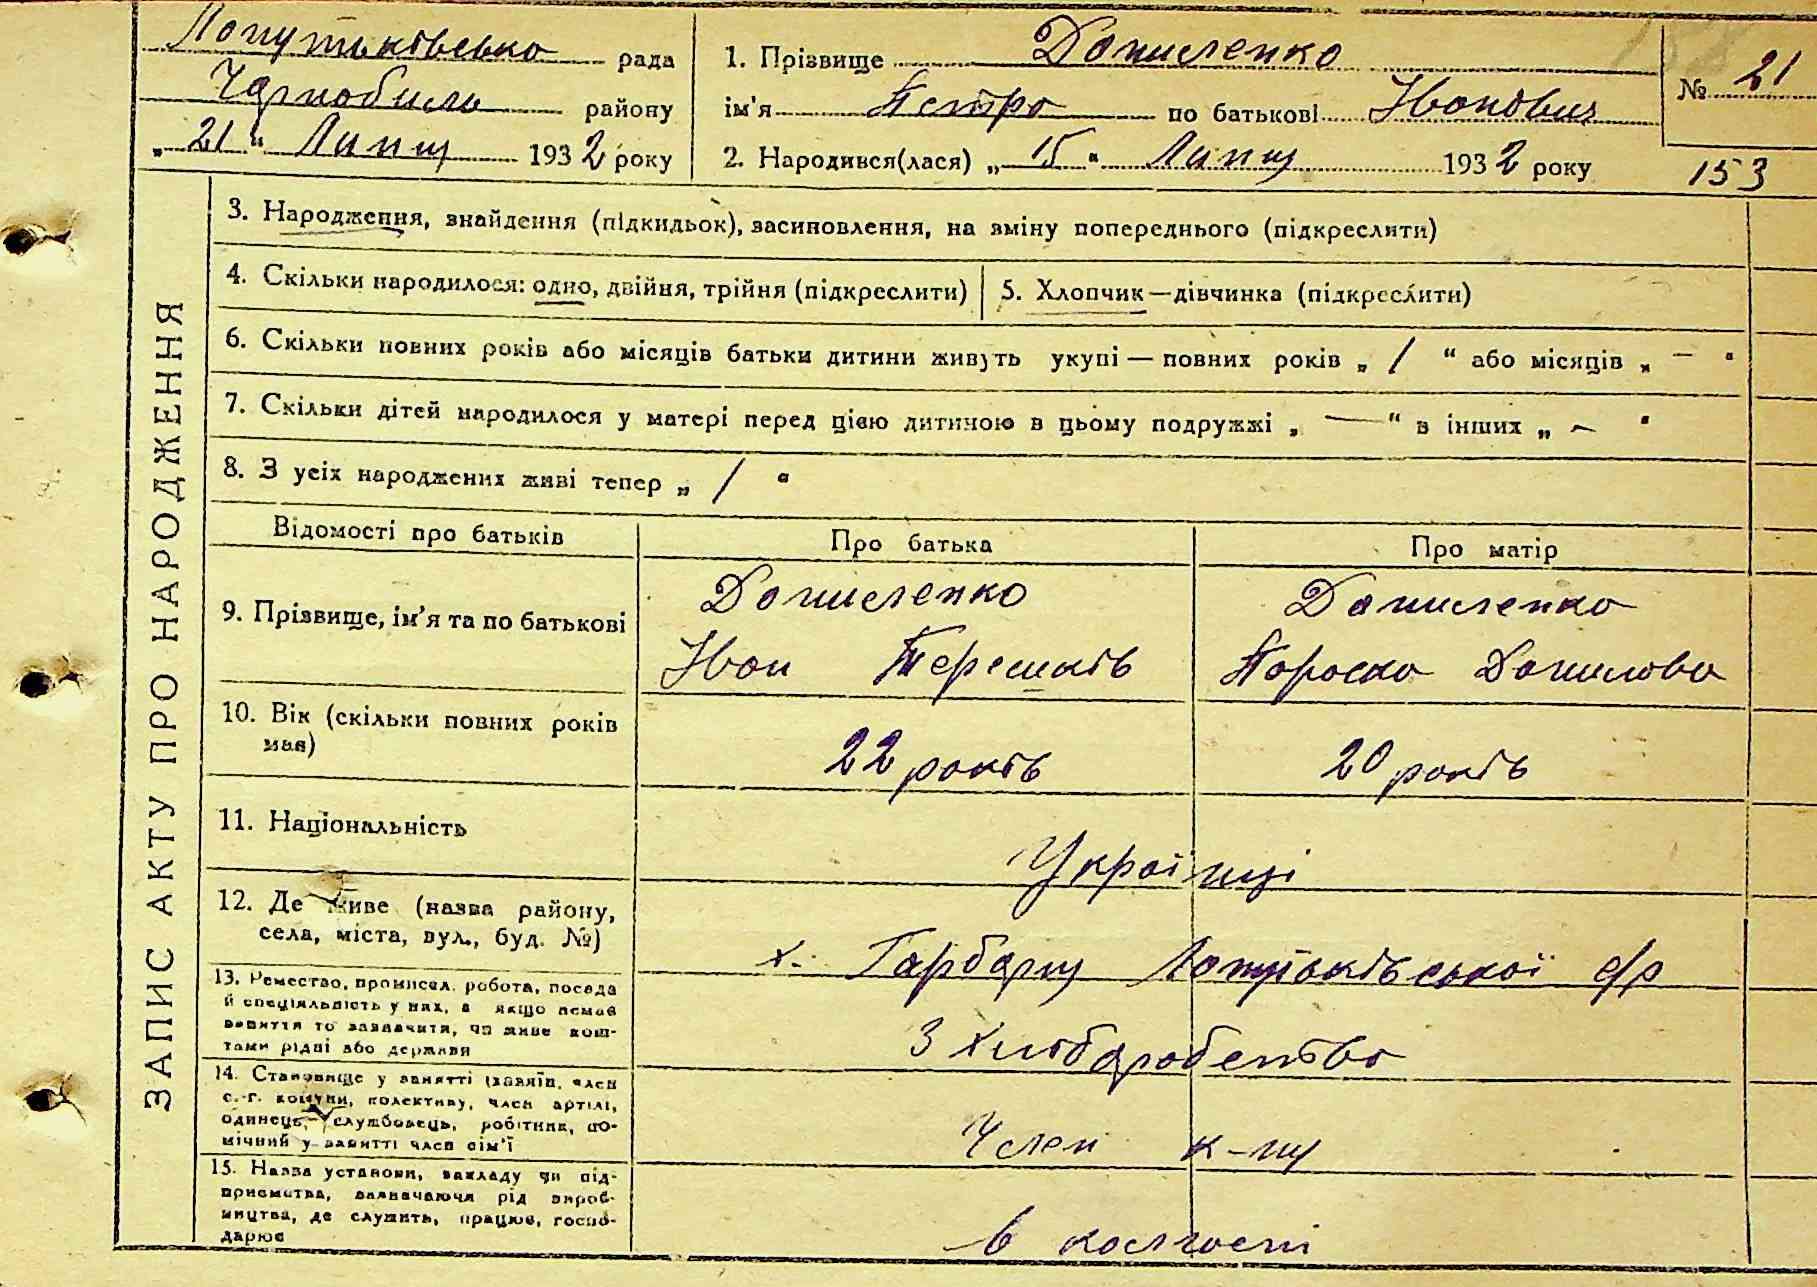 рада
1. Прізвище Даниленко
№ 21
Чорнобиль району
ім'я Петро по батькові Іванович
„ 21 “ Липня 1932 року
2. Народився(лася) „ 15 “ Липня 1932 року
153
ЗАПИС АКТУ ПРО НАРОДЖЕННЯ
3. Народження, знайдення (підкидьок), засиновлення, на зміну попереднього (підкреслити)
4. Скільки народилося: одно, двійня, трійня (підкреслити)
5. Хлопчик—дівчинка (підкреслити)
6. Скільки повних років або місяців батьки дитини живуть укупі — повних років „ / “ або місяців „ — “
7. Скільки дітей народилося у матері перед цією дитиною в цьому подружжі „ — “ в інших „ — “
8. З усіх народжених живі тепер „ / “
Відомості про батьків
Про батька
Про матір
9. Прізвище, ім'я та по батькові
Даниленко
Іван
Даниленко
Параска Данилова
10. Вік (скільки повних років має)
22 років
20 років
11. Національність
Українці
12. Де живе (назва району,
села, міста, вул., буд. №)
х. с/р
13. Ремество, промисел, робота, посада
й спеціальність у них, а якщо немає
заняття то зазначити, чи живе кош-
тами рідні або держави
З хліборобства
14. Становище у занятті (хазяїн, член
с.-г. комуни, колективу, член артілі,
одинець, службовець, робітник, по-
мічний у занятті член сім'ї
Член к-пу
15. Назва установи, закладу чи під-
приємства, зазначаючи рід вироб-
ництва, де служить, працює, госпо-
дарює
в колгоспі